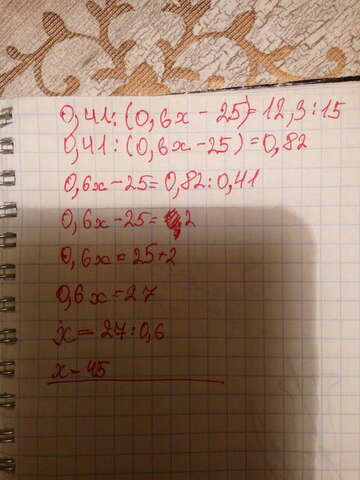 0,41:(0,6x-25)=12,3:15
0,41:(0,6x-25)=0,82
0,6x-25=0,82:0,41
0,6x-25=2
0,6x=25+2
0,6x=27
x=27:0,6
x=45